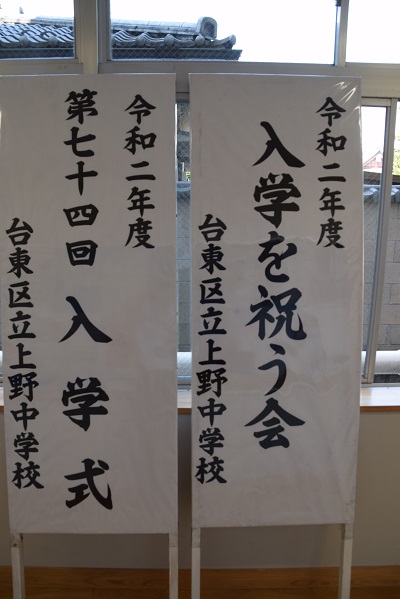 令和二年度
入学を祝う会
台東区立上野中学校
令和二年度
第七十四回 入学式
台東区立上野中学校